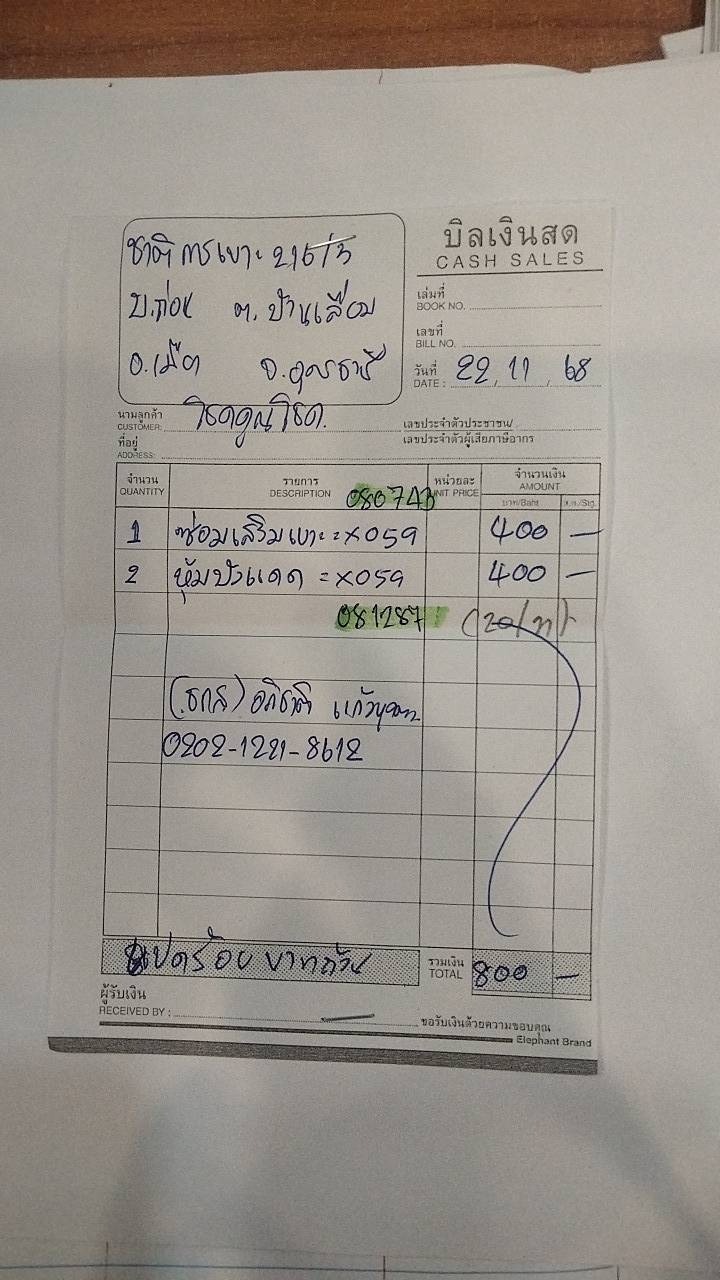 ชาติการเบาะ 216/3
บ.ก่อน ต. บ้านเลื่อม
อ.เมือง จ.อุดรธานี
บิลเงินสด
CASH SALES
เล่มที่
BOOK NO.
เลขที่
BILL NO.
วันที่
DATE : 22, 11, 68
นามลูกค้า
CUSTOMER:
เลขประจำตัวประชาชน/
เลขประจำตัวผู้เสียภาษีอากร
ที่อยู่
ADDRESS:
จำนวน รายการ หน่วยละ จำนวนเงิน
QUANTITY DESCRIPTION UNIT PRICE AMOUNT
บาท/Baht ส.ต./Stg.
080743
1 ซ่อมเสริมเบาะ = X059 400 —
2 หุ้มบังแดด = X059 400 —
081287
(ธกส) อภิชาติ
0202-1221-8612
แปดร้อย บาทถ้วน
รวมเงิน
TOTAL 800 —
ผู้รับเงิน
RECEIVED BY :
ขอรับเงินด้วยความขอบคุณ
Elephant Brand